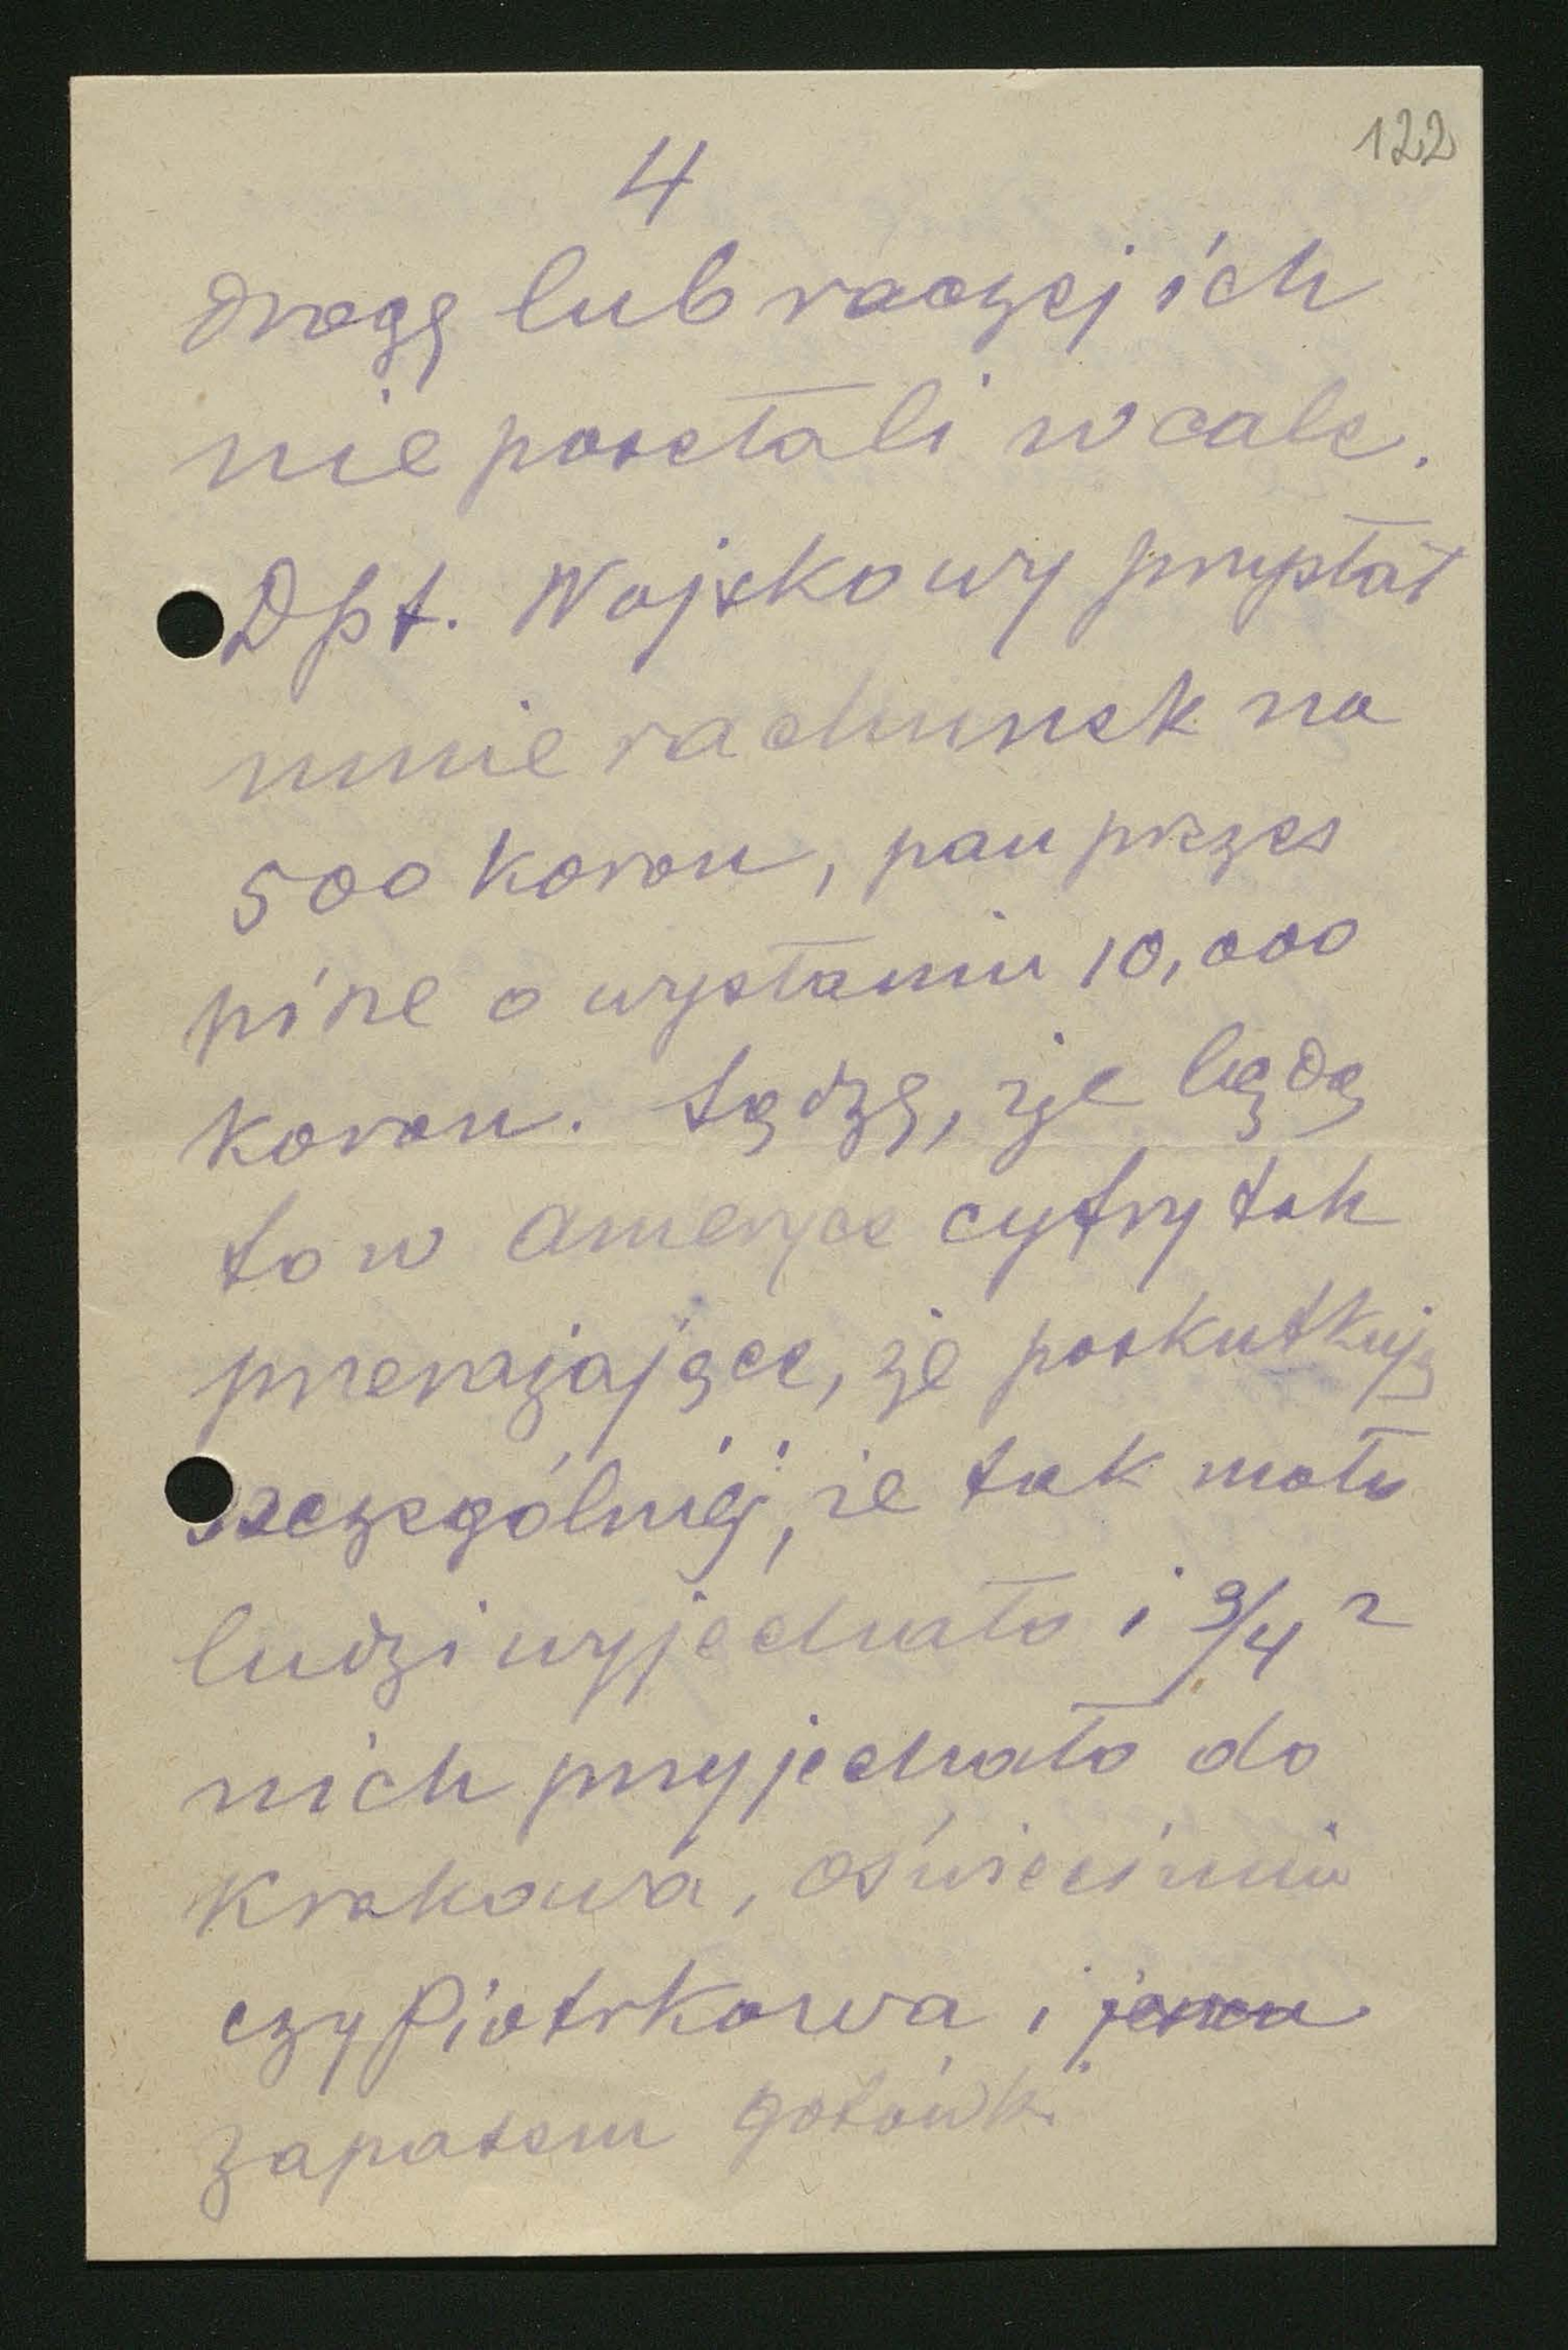 122
4
drogę lub raczej ich
nie posełali wcale.
Dpt. Wojskowy przysłał
mnie rachunek na
500 koron, pan prezes
pisze o wysłaniu 10,000
koron. Sądzę, że będą
to w Ameryce cyfry tak
przerażające, że poskutkują
szczególniej, że tak mało
ludzi wyjechało i 3/4 z
nich przyjechało do
Krakowa, Oświęcimia
czy Piotrkowa i
zapasem gotówki